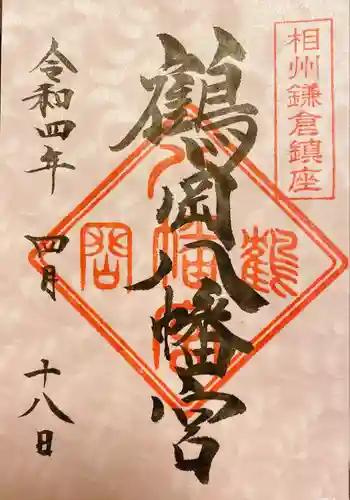 相州鎌倉鎮座
鶴岡八幡宮
鶴
八幡宮
岡
令和四年
四月
十八日